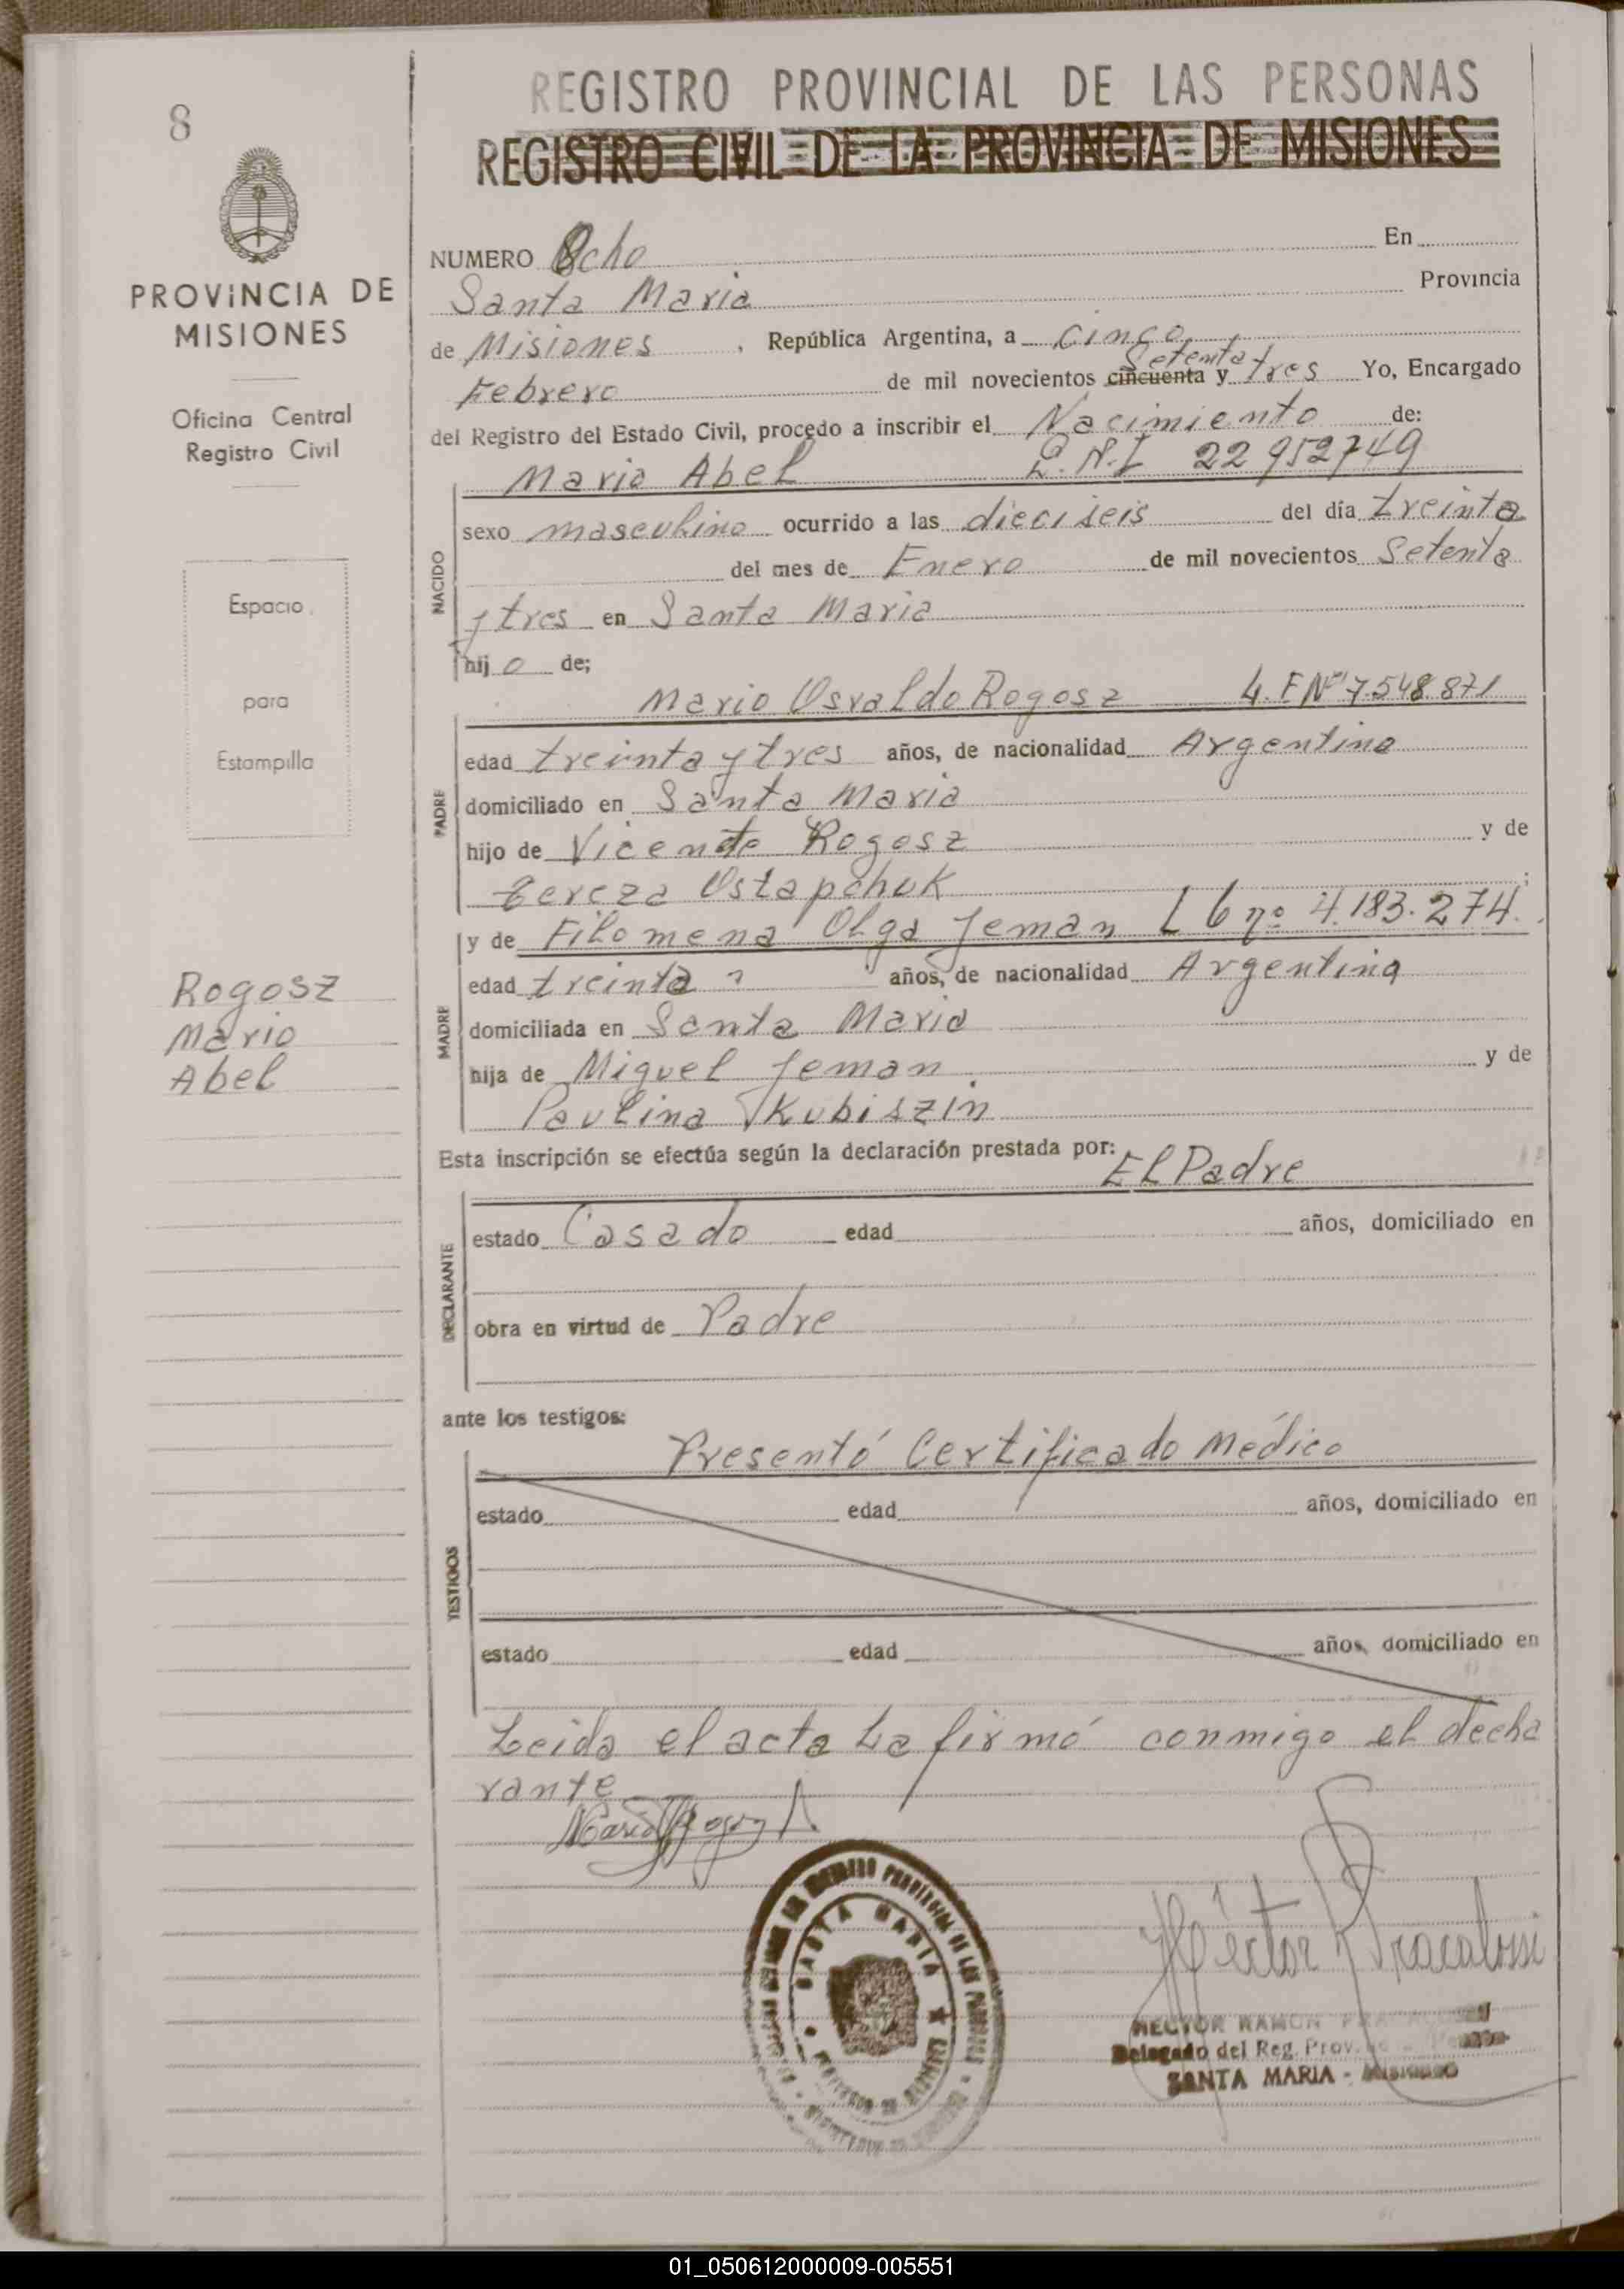 8
PROVINCIA DE
MISIONES
Oficina Central
Registro Civil
Espacio
para
Estampilla
Rogosz
Mario
Abel
REGISTRO PROVINCIAL DE LAS PERSONAS
REGISTRO CIVIL DE LA PROVINCIA DE MISIONES
NUMERO Ocho En
Santa Maria Provincia
de Misiones, República Argentina, a cinco
Setenta
Febrero de mil novecientos cincuenta y tres Yo, Encargado
del Registro del Estado Civil, procedo a inscribir el Nacimiento de:
Mario Abel D.N.I 22952749
NACIDO
sexo masculino ocurrido a las dieciseis del día treinta
del mes de Enero de mil novecientos Setenta
y tres en Santa Maria
hijo de;
Mario Osvaldo Rogosz L.E Nº 7.548.871
PADRE
edad treinta y tres años, de nacionalidad Argentina
domiciliado en Santa Maria
hijo de Vicente Rogosz y de
Tereza Ostapchuk;
y de Filomena Olga Jeman L 6 nº 4.183.274.
MADRE
edad treinta años, de nacionalidad Argentina
domiciliada en Santa Maria
hija de Miguel Jeman y de
Paulina Kubiszin
Esta inscripción se efectúa según la declaración prestada por:
El Padre
DECLARANTE
estado Casado edad años, domiciliado en
obra en virtud de Padre
ante los testigos:
Presentó Certificado Médico
TESTIGOS
estado edad años, domiciliado en
estado edad años, domiciliado en
Leida el acta La firmó conmigo el decla
rante
SANTA MARIA
Héctor R Fracalossi
HECTOR RAMON
Delegado del Reg. Prov.
SANTA MARIA - MISIONES
01_050612000009-005551